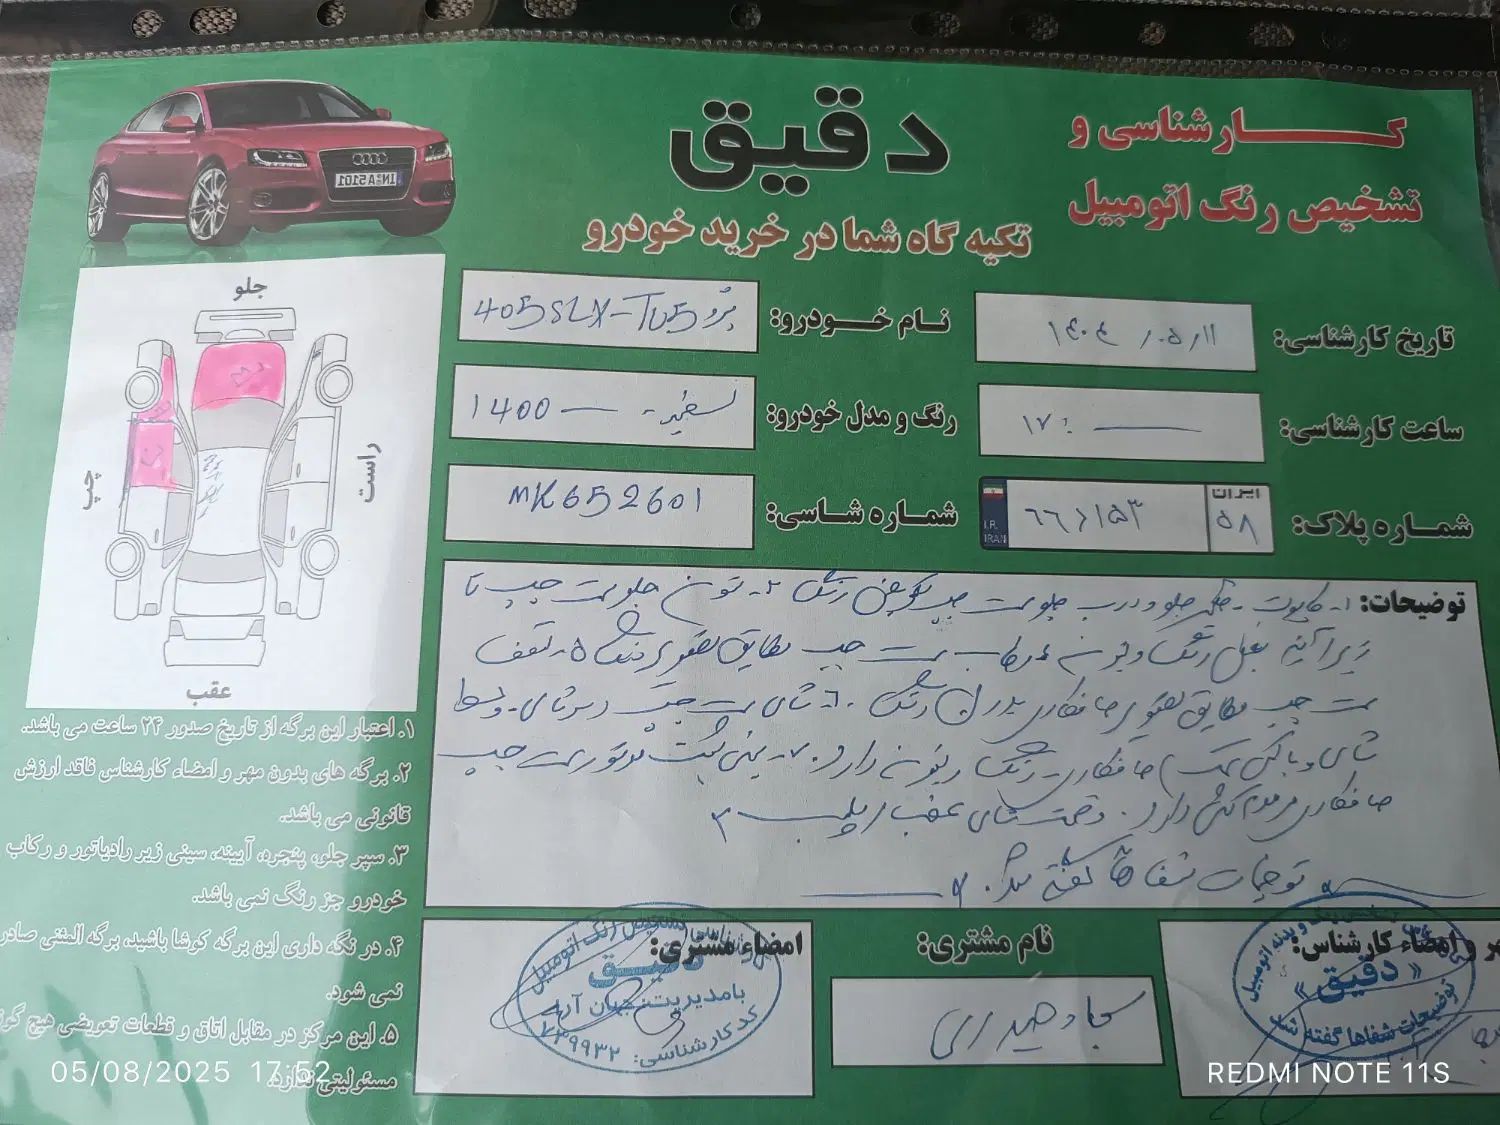 کارشناسی و
تشخیص رنگ اتومبیل
دقیق
تکیه گاه شما در خرید خودرو
INA5101
تاریخ کارشناسی: ۱۴۰۴/۰۵/۱۱
نام خودرو: پژو 405SLX-TU5
ساعت کارشناسی: ۱۷:
رنگ و مدل خودرو: سفید - 1400
شماره پلاک: ۱۵۳ ۶۶ ایران ۵۸
I.R.
IRAN
شماره شاسی: MK652601
جلو
چپ
راست
عقب
توضیحات: ۱- کاپوت - گلگیر جلو و درب جلو سمت چپ تعویض رنگ ۲- ستون جلو سمت چپ تا
زیر آینه بغل رنگ و سمت چپ مطابق تصویر رنگ ۵- سقف
سمت چپ مطابق تصویر صافکاری بدون رنگ ۶- شاسی سمت چپ و سرشاسی - وسط
شاسی و صافکاری - رنگ دارد. ۷- سینی پشت موتور سمت چپ
صافکاری مرمت کشی دارد. قسمت شاسی عقب پلمپ
توضیحات شفاها گفته شد.
۱. اعتبار این برگه از تاریخ صدور ۲۴ ساعت می باشد.
۲. برگه های بدون مهر و امضاء کارشناس فاقد ارزش
قانونی می باشد.
۳. سپر جلو، پنجره، آیینه، سینی زیر رادیاتور و رکاب
خودرو جز رنگ نمی باشد.
۴. در نگه داری این برگه کوشا باشید، برگه المثنی صادر
نمی شود.
۵. این مرکز در مقابل اتاق و قطعات تعویضی هیچ گونه
مسئولیتی ندارد.
مهر و امضاء کارشناس:
نام مشتری:
سجاد حیدری
امضاء مشتری:
تشخیص رنگ اتومبیل
دقیق
بامدیریت: جهان آرا
کد کارشناسی: ۷۳۹۹۳۲
« دقیق »
توضیحات شفاها گفته شد
05/08/2025 17:52
REDMI NOTE 11S